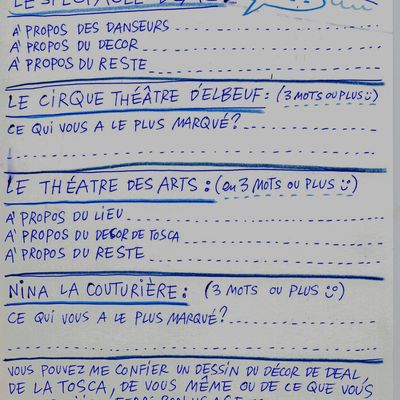 LE SPECTACLE
À PROPOS DES DANSEURS
À PROPOS DU DECOR
À PROPOS DU RESTE
LE CIRQUE THÉÂTRE D'ELBEUF : (3 MOTS OU PLUS ☺)
CE QUI VOUS A LE PLUS MARQUÉ ?
LE THÉATRE DES ARTS : (en 3 MOTS OU PLUS ☺)
À PROPOS DU LIEU
À PROPOS DU DECOR DE TOSCA
À PROPOS DU RESTE
NINA LA COUTURIÈRE : (3 MOTS OU PLUS ☺)
CE QUI VOUS A LE PLUS MARQUÉ ?
VOUS POUVEZ ME CONFIER UN DESSIN DU DÉCOR DE DEAL,
DE LA TOSCA, DE VOUS MÊME OU DE CE QUE VOUS